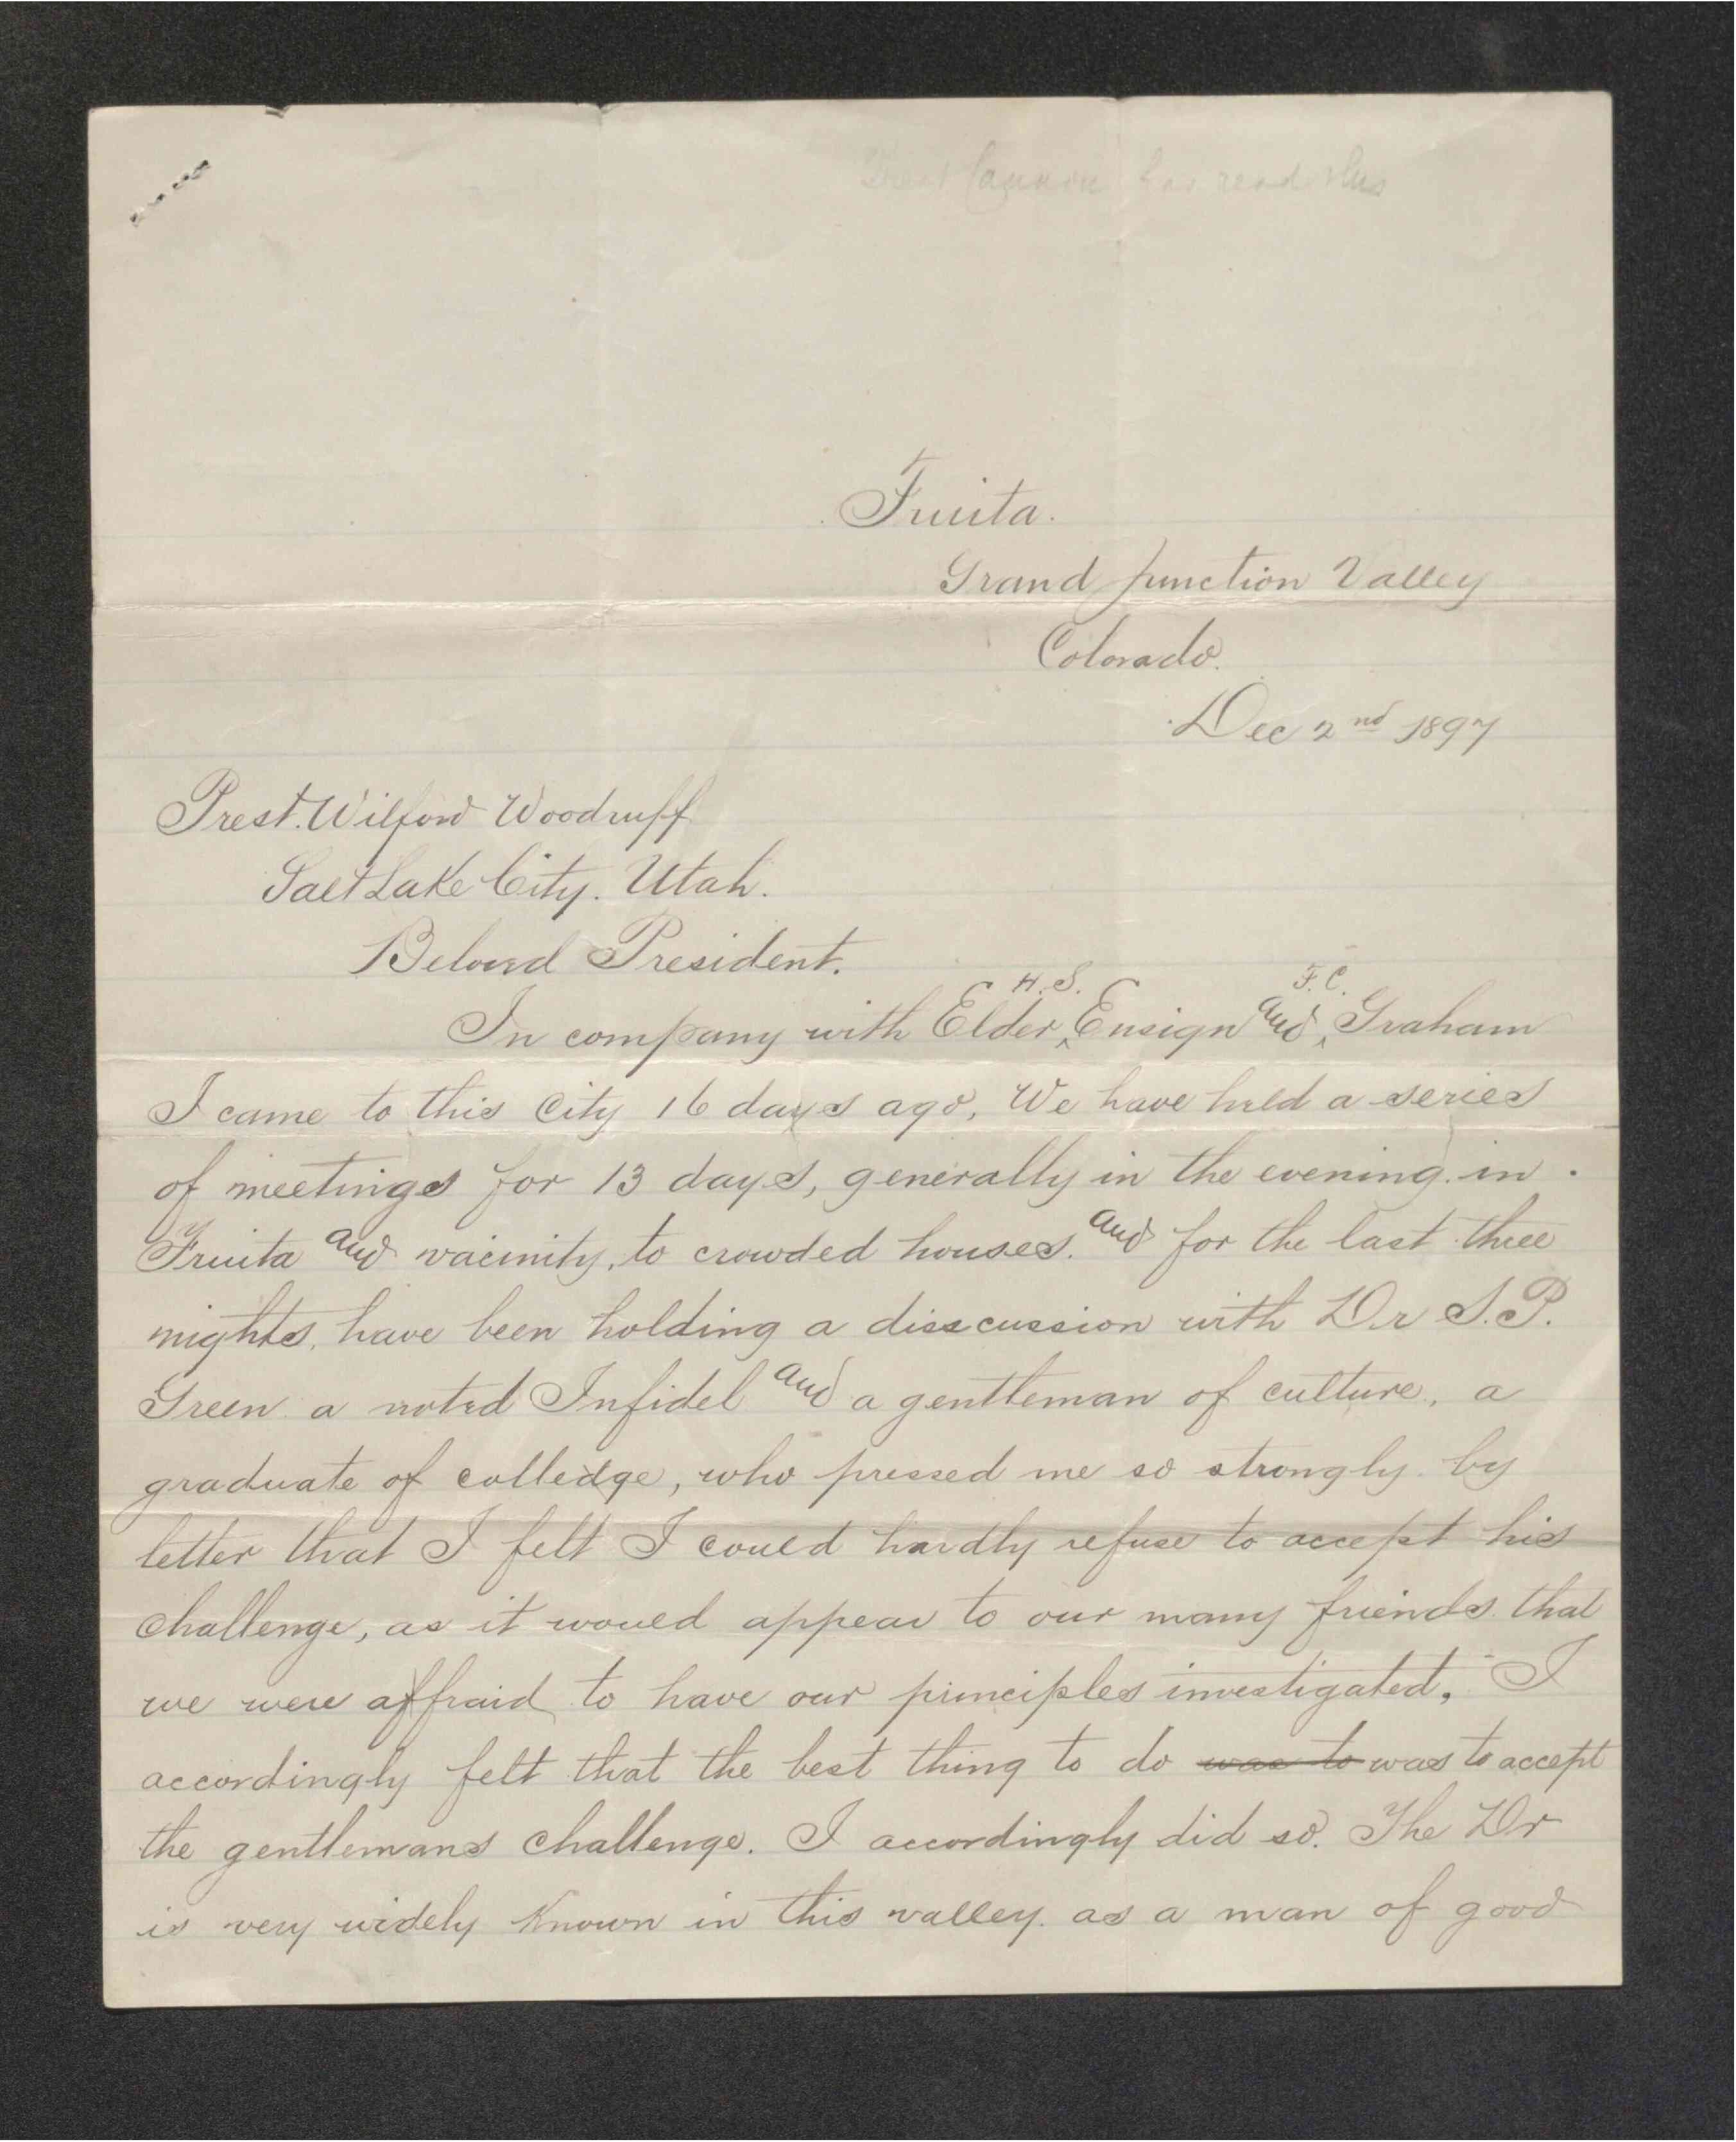 Prest Cannon has read this
Fruita.
Grand Junction Valley
Colorado.
Dec 2nd 1897
Prest. Wilford Woodruff
Salt Lake City. Utah.
Beloved President.
In company with Elder H. S. Ensign and F. C. Graham
I came to this City 16 days ago, We have held a series
of meetings for 13 days, generally in the evening. in
Fruita and vacinity, to crowded houses. and for the last three
nights, have been holding a disscussion with Dr S. P.
Green a noted Infidel and a gentleman of culture, a
graduate of colledge, who pressed me so strongly by
letter that I felt I could hardly refuse to accept his
challenge, as it would appear to our many friends that
we were affraid to have our principles investigated. I
accordingly felt that the best thing to do was to was to accept
the gentlemans challenge. I accordingly did so. The Dr
is very widely Known in this valley. as a man of good